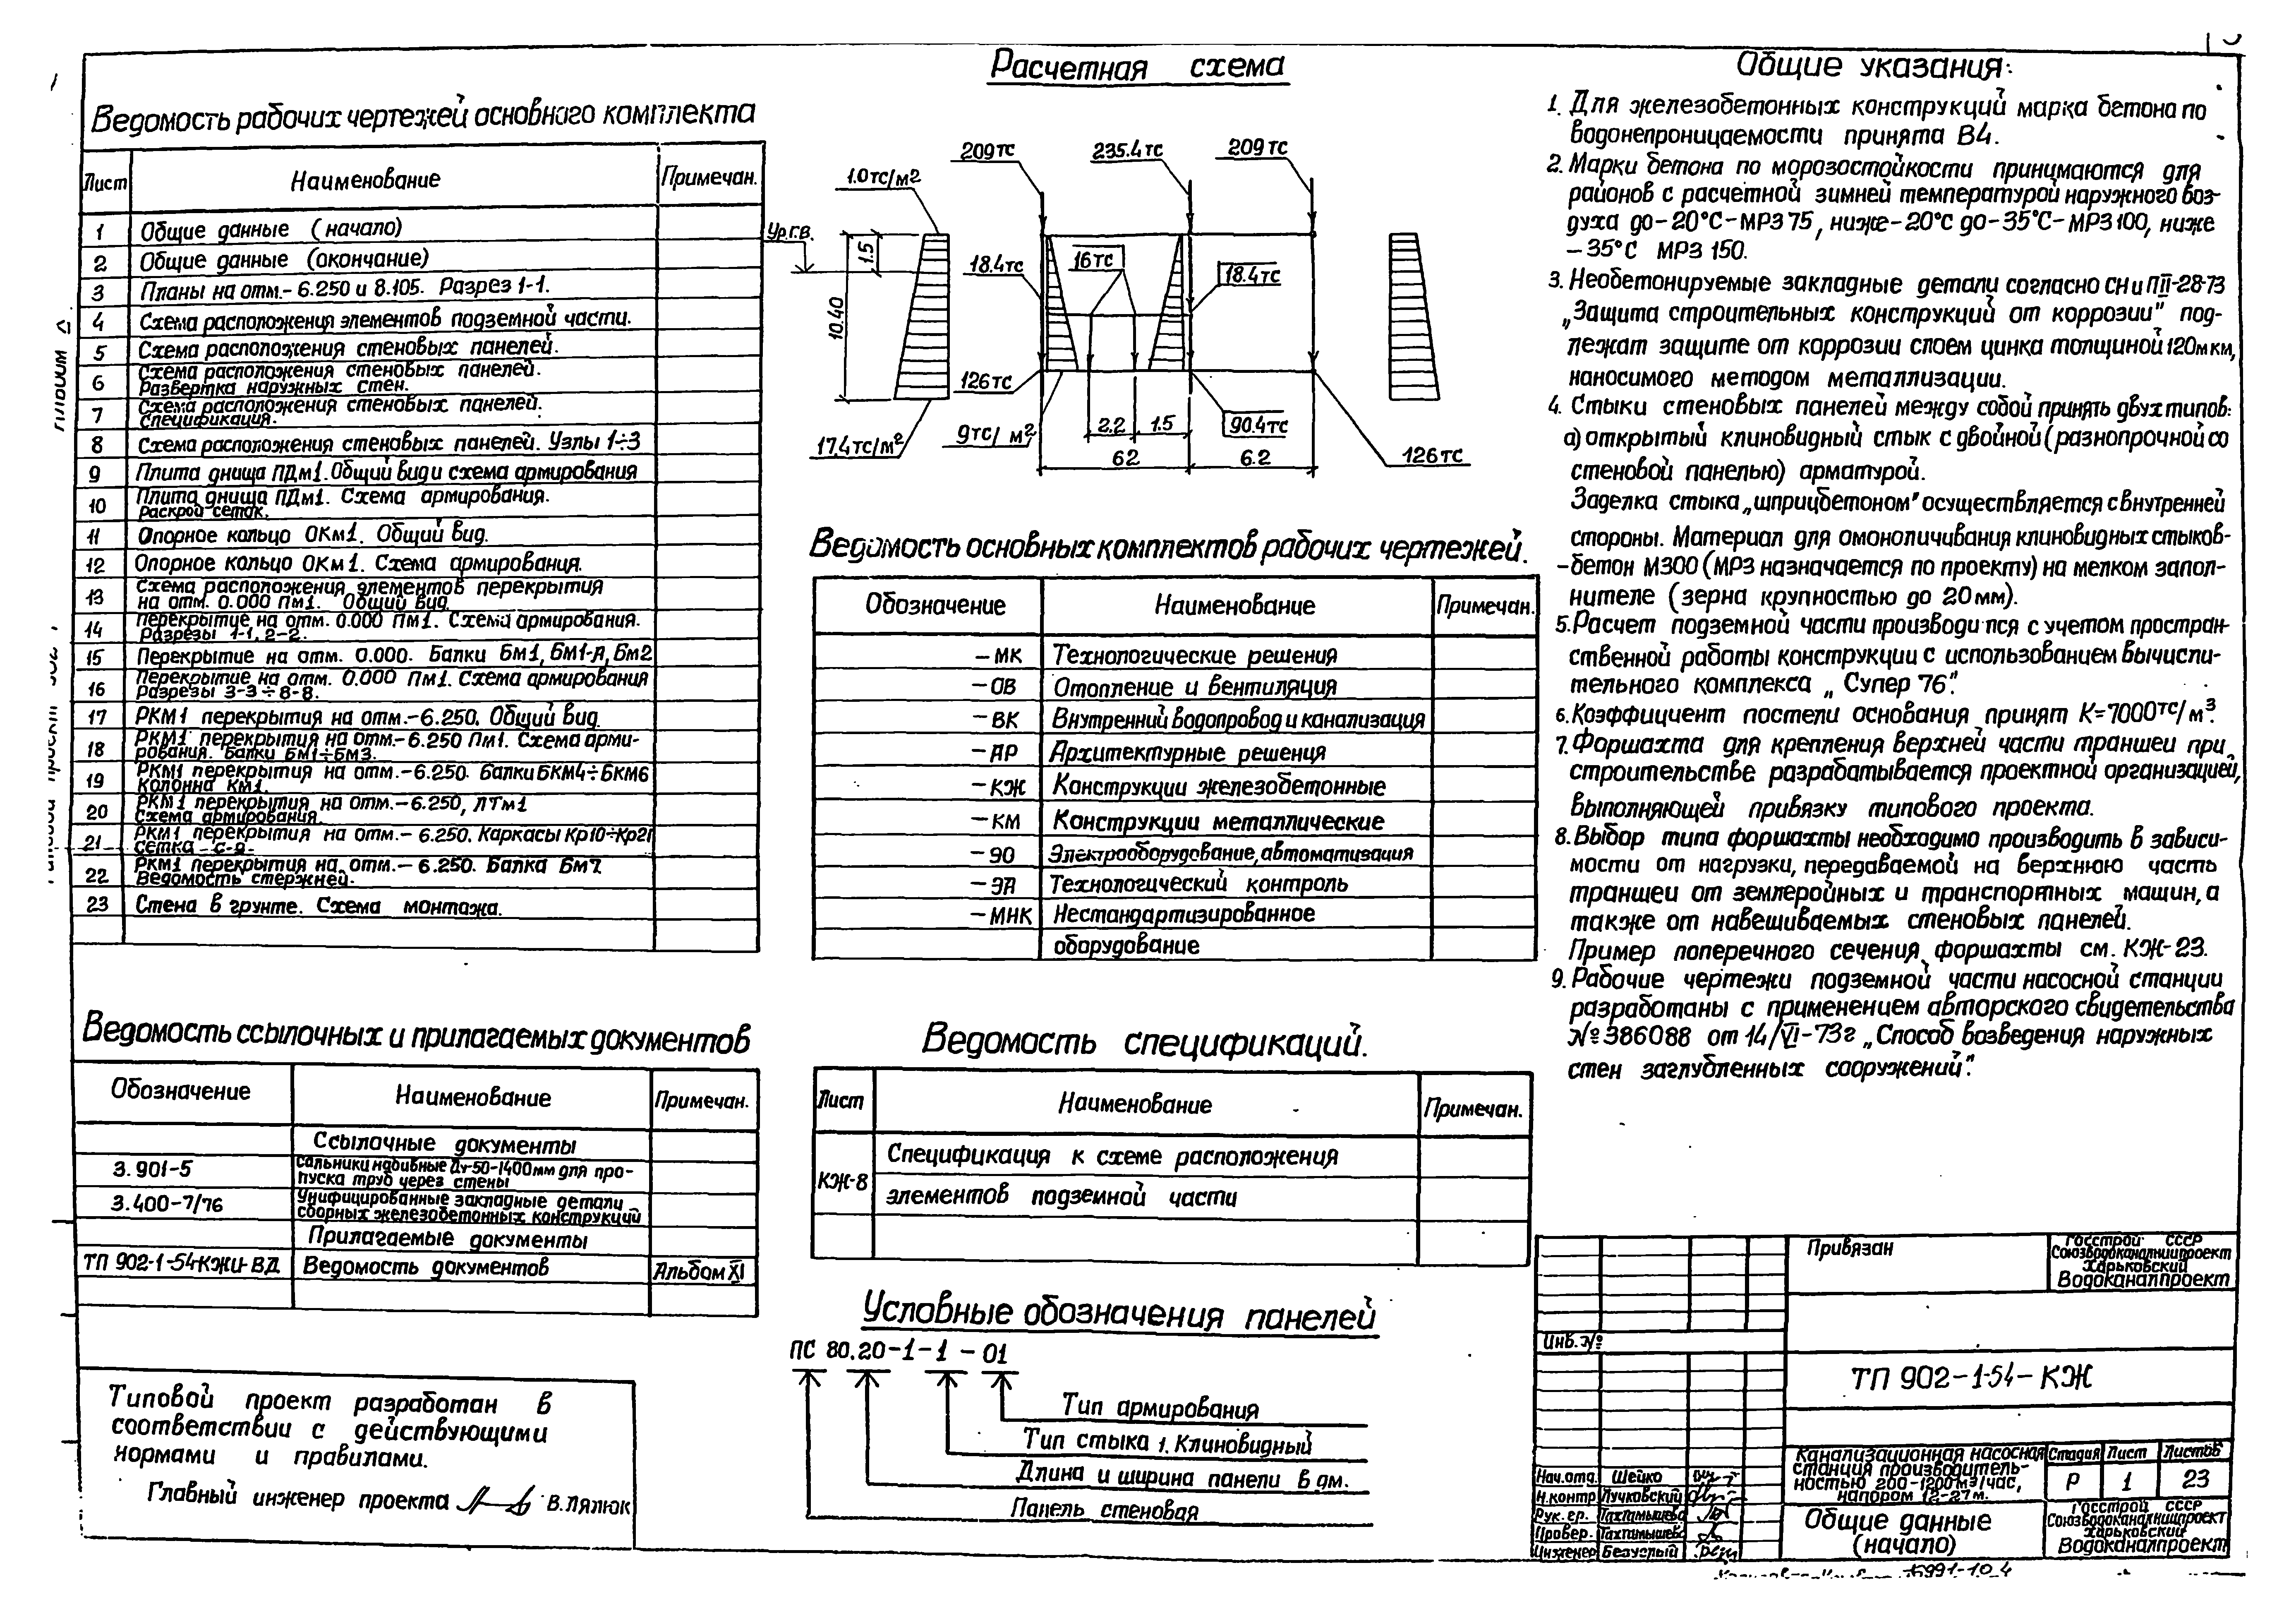 Ведомость рабочих чертежей основного комплекта
Лист
Наименование
Примечан.
1 Общие данные (начало)
2 Общие данные (окончание)
3 Планы на отм.-6.250 и 8.105. Разрез 1-1.
4 Схема расположения элементов подземной части.
5 Схема расположения стеновых панелей.
6 Схема расположения стеновых панелей.
Развертка наружных стен.
7 Схема расположения стеновых панелей.
Спецификация.
8 Схема расположения стеновых панелей. Узлы 1÷3
9 Плита днища ПДм1. Общий вид и схема армирования
10 Плита днища ПДм1. Схема армирования.
Раскрой сеток.
11 Опорное кольцо ОКм1. Общий вид.
12 Опорное кольцо ОКм1. Схема армирования.
13 Схема расположения элементов перекрытия
на отм. 0.000 Пм1. Общий вид.
14 Перекрытие на отм. 0.000 Пм1. Схема армирования.
Разрезы 1-1, 2-2.
15 Перекрытие на отм. 0.000. Балки Бм1, Бм1-А, Бм2
16 Перекрытие на отм. 0.000 Пм1. Схема армирования
Разрезы 3-3÷8-8.
17 РКМ1 перекрытия на отм.-6.250. Общий вид
18 РКМ1 перекрытия на отм.-6.250 Пм1. Схема арми-
рования. Балки Бм1÷Бм3.
19 РКМ1 перекрытия на отм.-6.250. Балки БКМ4÷БКМ6
Колонна КМ1.
20 РКМ1 перекрытия на отм.-6.250, ЛТм1
Схема армирования.
21 РКМ1 перекрытия на отм.-6.250. Каркасы Кр10÷Кр21
Сетка С-9.
22 РКМ1 перекрытия на отм.-6.250. Балка Бм7.
Ведомость стержней.
23 Стена в грунте. Схема монтажа.
Ведомость ссылочных и прилагаемых документов
Обозначение
Наименование
Примечан.
Ссылочные документы
3.901-5 Сальники набивные Ду-50-1400мм для про-
пуска труб через стены
3.400-7/76 Унифицированные закладные детали
сборных железобетонных конструкций
Прилагаемые документы
ТП 902-1-54-КЖИ-ВД Ведомость документов Альбом XI
Типовой проект разработан в
соответствии с действующими
нормами и правилами.
Главный инженер проекта В.Лялюк
Расчетная схема
209тс
235.4тс
209тс
1.0тс/м2
Ур.г.в.
1.5
18.4тс
16тс
18.4тс
10.40
126тс
17.4тс/м2
9тс/м2
2.2
1.5
90.4тс
126тс
62
6.2
Ведомость основных комплектов рабочих чертежей.
Обозначение
Наименование
Примечан.
-МК Технологические решения
-ОВ Отопление и вентиляция
-ВК Внутренний водопровод и канализация
-АР Архитектурные решения
-КЖ Конструкции железобетонные
-КМ Конструкции металлические
-ЭО Электрооборудование, автоматизация
-ЭА Технологический контроль
-МНК Нестандартизированное
оборудование
Ведомость спецификаций.
Лист
Наименование
Примечан.
КЖ-8 Спецификация к схеме расположения
элементов подземной части
Условные обозначения панелей
ПС 80.20-1-1-01
Тип армирования
Тип стыка 1. Клиновидный
Длина и ширина панели в дм.
Панель стеновая
Общие указания:
1. Для железобетонных конструкций марка бетона по
водонепроницаемости принята В4.
2. Марки бетона по морозостойкости принимаются для
районов с расчетной зимней температурой наружного воз-
духа до-20°С-МРЗ 75, ниже-20°С до-35°С-МРЗ 100, ниже
-35°С МРЗ 150.
3. Необетонируемые закладные детали согласно СНиП II-28-73
„Защита строительных конструкций от коррозии" под-
лежат защите от коррозии слоем цинка толщиной 120мкм,
наносимого методом металлизации.
4. Стыки стеновых панелей между собой принять двух типов:
а) открытый клиновидный стык с двойной (разнопрочной со
стеновой панелью) арматурой.
Заделка стыка „шприцбетоном" осуществляется с внутренней
стороны. Материал для омоноличивания клиновидных стыков-
-бетон М300 (МРЗ назначается по проекту) на мелком запол-
нителе (зерна крупностью до 20мм).
5. Расчет подземной части производился с учетом простран-
ственной работы конструкции с использованием вычисли-
тельного комплекса „Супер 76".
6. Коэффициент постели основания принят К=7000тс/м3.
7. Форшахта для крепления верхней части траншеи при
строительстве разрабатывается проектной организацией,
выполняющей привязку типового проекта.
8. Выбор типа форшахты необходимо производить в зависи-
мости от нагрузки, передаваемой на верхнюю часть
траншеи от землеройных и транспортных машин, а
также от навешиваемых стеновых панелей.
Пример поперечного сечения форшахты см. КЖ-23.
9. Рабочие чертежи подземной части насосной станции
разработаны с применением авторского свидетельства
№386088 от 14/VI-73г „Способ возведения наружных
стен заглубленных сооружений".
Привязан
Госстрой СССР
Союзводоканалниипроект
Харьковский
Водоканалпроект
Инв.№
ТП 902-1-54-КЖ
Канализационная насосная
станция производитель-
ностью 200-1200м3/час,
напором 12-27м.
Стадия Лист Листов
Р 1 23
Нач.отд. Шейко
Н.контр Лучковский
Рук.гр. Тахтамышева
Провер. Тахтамышева
Инженер Безуглый
Общие данные
(начало)
Госстрой СССР
Союзводоканалниипроект
Харьковский
Водоканалпроект